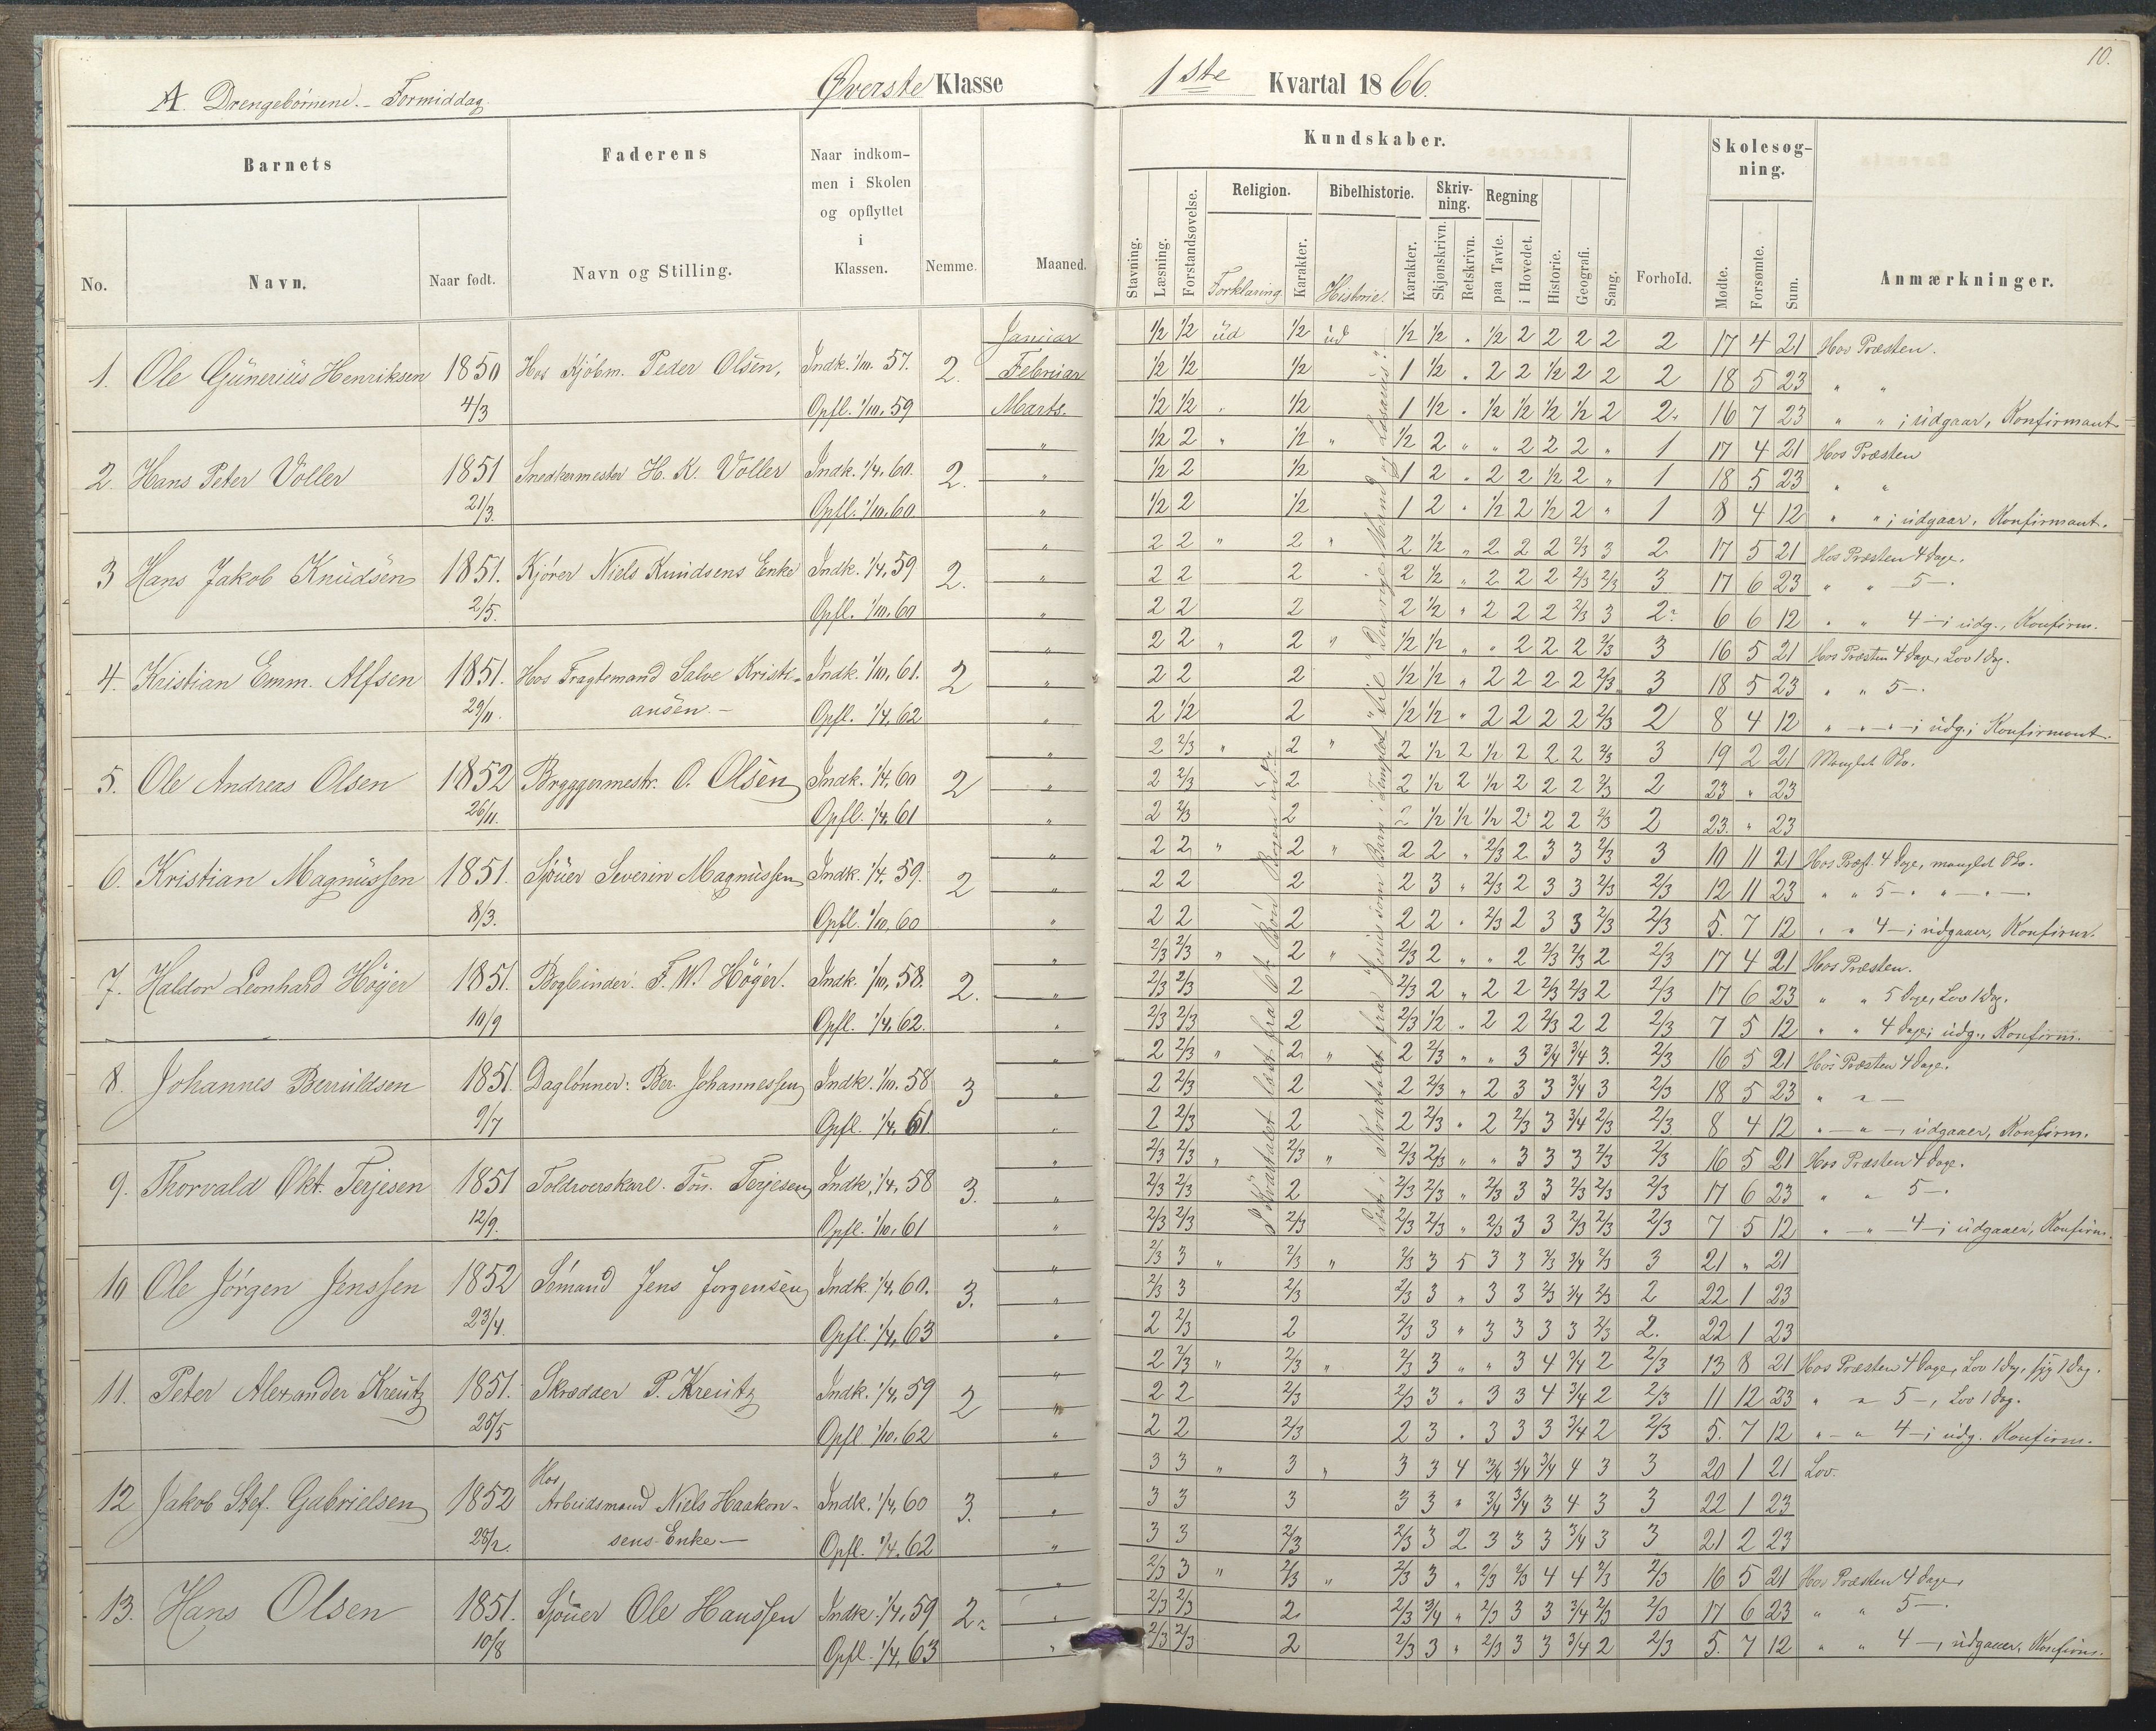 10.
A. Drengebørnene. - Formiddag.
Øverste Klasse
1ste Kvartal 1866.
Barnets
Faderens
Naar indkom-
men i Skolen
og opflyttet
i
Klassen.
Nemme.
Maaned.
No.
Navn.
Naar født.
Navn og Stilling.
Kundskaber.
Stavning.
Læsning.
Forstandsøvelse.
Religion.
Forklaring.
Karakter.
Bibelhistorie.
Historie.
Karakter.
Skriv-
ning.
Skjønskrivn.
Retskrivn.
Regning
paa Tavle.
i Hovedet.
Historie.
Geografi.
Sang.
Forhold.
Skolesøg-
ning.
Mødte.
Forsømte.
Sum.
Anmærkninger.
1. Ole Günerius Henriksen 1850 Hos Kjöbm. Peder Olsen, Indk. 1/10. 57. 2. Januar
4/3 Opfl. 1/10. 59 Februar
Marts.
1/2 1/2 ud 1/2 ud 1/2 1/2 " 1/2 2 2 2 2 2 17 4 21 Hos Præsten.
1/2 1/2 1/2 1 1/2 " 2 2 1/2 2 2 2 18 5 23 " "
1/2 1/2 " 1/2 1 1/2 " 1/2 1/2 1/2 1/2 2 2. 16 7 23 " " ; udgaar, Konfirmant.
2. Hans Peter Voller 1851 Snedkermester H. K. Voller Indk. 1/4. 60. 2. "
21/3. Opfl. 1/10. 60. "
1/2 2 " 1/2 " 1/2 2 " " 2 2 2 " 1 17 4 21 Hos Præsten
1/2 2 1/2 1 2 " 2 2 1/2 2 " 1 18 5 23 " "
1/2 2 1/2 1 2 " 1/2 2 1/2 2 " 1 8 4 12 " " ; udgaar, Konfirmant.
3 Hans Jakob Knudsen 1851. Kjører Niels Knudsens Enke Indk. 1/4. 59 2. "
2/5. Opfl. 1/10. 60 "
2 2 " 2 " 2 1/2 " 2 2 2 2/3 3 2 17 5 21 Hos Præsten 4 Dage.
2 2 2 2 1/2 " 2 2 2 2/3 2/3 3 17 6 23 " " 5 -.
2 2 2 2 1/2 " 2 2 2 2/3 3 2. 6 6 12 " " 4 - ; udg., Konfirm.
4. Kristian Emm. Alfsen 1851. Hos Fragtemand Salve Kristi- Indk. 1/10. 61. 2 "
29/11. ansen. - Opfl. 1/4. 62 "
2 2 " 2 " 1/2 1/2 " " 2 2 2 2/3 3 16 5 21 Hos Præsten 4 Dage, Lov 1 Dag.
2 2 2 1/2 1/2 " 2 2 2 2 2/3 3 18 5 23 " " 5 -.
2 1/2 2 1/2 1/2 " 2 2 2 2 2/3 2 8 4 12 " " - ; udg.; Konfirmant.
5. Ole Andreas Olsen 1852 Bryggermestr. O. Olsen Indk. 1/4. 60 2 "
26/11. Opfl. 1/4. 61 "
2 2/3 " 2 " 2 1/2 2 1/2 2 2 2 2/3 3 19 2 21 Manglet Sko.
2 2/3 2 2 1/2 2 1/2 2 2 2 2/3 2 23 " 23
2 2/3 2 2 1/2 1/2 1/2 2 2 2 2/3 2 23. " 23
6. Kristian Magnussen 1851. Sjöuer Severin Magnussen Indk. 1/4. 59. 2 "
8/3. Opfl. 1/10. 60 "
2 2 " 2 " 2 2 " 2/3 2 3 3 2/3 3 10 11 21 Hos Præst. 4 Dage, manglet Sko.
2 2 2 2 3 " 2/3 2 3 3 2/3 2/3 12 11 23 " " 5 - " " - " -.
2 2 2 2 2 " 2/3 2 3 3 2/3 2/3 5. 7 12 " " 4 - ; udgaaer, Konfirm.
7. Haldor Leonhard Höyer 1851. Bogbinder. F. W. Höyer. Indk. 1/10. 58. 2. "
10/9 Opfl. 1/4. 62. "
2/3 2/3 " 2 " 2/3 2 " " 2 2/3 2/3 2 2/3 17 4 21 Hos Præsten.
2/3 2/3 2 2/3 2 " 2 2 2/3 2/3 2 2/3 17 6 23 " " 5 Dage, Lov 1 Dag.
2/3 2/3 2 2/3 1/2 " 2 2 2/3 2 2 2/3 7 5 12 " " 4 Dage; udg., Konfirm.
8. Johannes Berruldsen 1851. Daglönner: Ber. Johannessen Indk. 1/10. 58 3 "
9/7 Opfl. 1/4. 61. "
2 2/3 " 2 " 2 2/3 " " 3 3/4 3/4 3. 2/3 16 5 21 Hos Præsten 4 Dage.
2 2/3 2 2 2/3 " 2 3 3 3/4 3 2/3 18 5 23 " " -
2 2/3 2 2 2/3 " 2 2/3 3 3/4 2/3 2/3 8 4 12 " - " - , udgaaer, Konfirm.
9. Thorvald Okt. Terjesen 1851 Toldroerskarl. Tön. Terjesen Indk. 1/4. 58 3. "
12/9. Opfl. 1/10. 61 "
2/3 2/3 " 2/3 " 2/3 2/3 " " 3 3 3 2/3 2/3 16 5 21 Hos Præsten 4 Dage.
2/3 2/3 2 2/3 2/3 " 2/3 3 3 2/3 2/3 2/3 17 6 23 " " 5 -.
2/3 2/3 2/3 2/3 2/3 " 2/3 3 3 2/3 2/3 2/3 7 5 12 " - " - 4 - ; udgaaer, Konfirm.
10 Ole Jörgen Jenssen 1852 Sömand Jens Jorgensen Indk. 1/4. 60. 3. "
23/4. Opfl. 1/4. 63 "
2/3 3 " 2/3 " 2/3 3 5 3 3 2/3 3/4 2/3 3 21 " 21
2/3 3 2/3 2/3 3 " 3 3 2/3 3/4 2/3 2 22 1 23
2 2/3 2 2/3 3 " 3 3 3 3 2/3 2. 22 1 23
11. Peter Alexander Kreutz 1851. Skrædder P. Kreutz Indk. 1/4. 59 2 "
25/5 Opfl. 1/10. 62 "
2 2/3 " 2/3 " 2/3 3 " " 3 4 3/4 2 2/3 13 8 21 Hos Præsten 4 Dage, Lov 1 Dag, syg 1 Dag.
2 2 2/3 2/3 3 " 3 3 4 3/4 2 2/3 11 12 23 " " 5 -, Lov 1 Dag.
2 2 2/3 2 3 " 3 3 3 3/4 2 2/3 5. 7 12 " - " 4 - ; udg. Konfirm.
12 Jakob Stef. Gabrielsen 1852 Hos Arbeidsmand Niels Haakon- Indk. 1/4. 60 3. "
28/2. sens Enke - Opfl. 1/4. 62 "
3 3 " 3 " 3 3 4 3/4 3/4 3/4 4 3 3 20 1 21 Lov.
3 3 3 3 3 " 3/4 3/4 3 4 3 3 22 1 23
3 3 2/3 2/3 3 2 3 3 3 3/4 3 3 21 2 23
13. Hans Olsen 1851. Sjöuer Ole Hanssen Indk. 1/4. 59 2. "
10/8 Opfl. 1/4. 63 "
2/3 3 " 2/3 " 2/3 3 " 2/3 2/3 4 4 2/3 2/3 16 5 21 Hos Præsten 4 Dage.
2/3 2/3 2. 2/3 3/4 " 2/3 3 3 3/4 2/3 2/3 17 6 23 " " 5 -.
2/3 2/3 2 2/3 3 " 2/3 3 3 3/4 2 2/3 5. 7 12 " " 4 -, udgaaer, Konfirm.
I Kvartalet læst fra 6te Bön Bogen ud.
Læst i Kvartalet fra "Jesus som Barn i Templet" til "Den rige Mand og Lasarus".